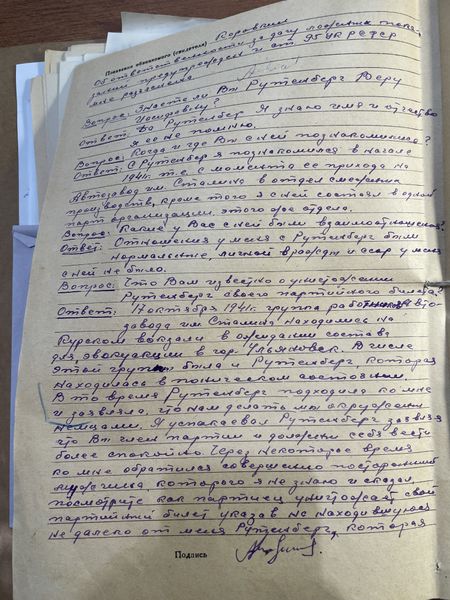 Показания обвиняемого (свидетеля) Коровкин
Об ответственности за дачу ложных пока-
заний предупрежден и ст 95 УК РСФСР
мне разъяснена
Вопрос: Знаете ли Вы Рутенберг Веру
Иосифовну?
Ответ: Да Рутенберг Я знаю имя и отчество
Я ее не помню.
Вопрос: Когда и где Вы с ней познакомились?
Ответ: С Рутенберг я познакомился в начале
1941г. т.е. с момента ее прихода на
Автозавод им. Сталина в отдел смежных
производств, кроме того я с ней состоял в одной
парт организации, этого же отдела.
Вопрос: Какие у Вас с ней были взаимоотношения?
Ответ: Отношения у меня с Рутенберг были
нормальные, личной вражды и ссор у меня
с ней не было.
Вопрос: Что Вам известно о уничтожении
Рутенберг своего партийного билета?
Ответ: октября 1941г. группа работников Авто-
завода им Сталина находились на
Курском вокзале в ожидании состава
для эвакуации в гор. Ульяновск. В числе
этой группы была и Рутенберг которая
находилась в паническом состоянии.
В то время Рутенберг подходила ко мне
и заявляла, что нам делать мы окружены
немцами. Я успакаевал Рутенберг заявляя
что Вы член партии и должны себя вести
более спокойно. Через некоторое время
ко мне обратился совершенно посторонний
мужчина которого я не знаю и сказал,
посмотрите как партиец уничтожает свой
партийный билет указав на находившуюся
не далеко от меня Рутенберг, которая
Подпись